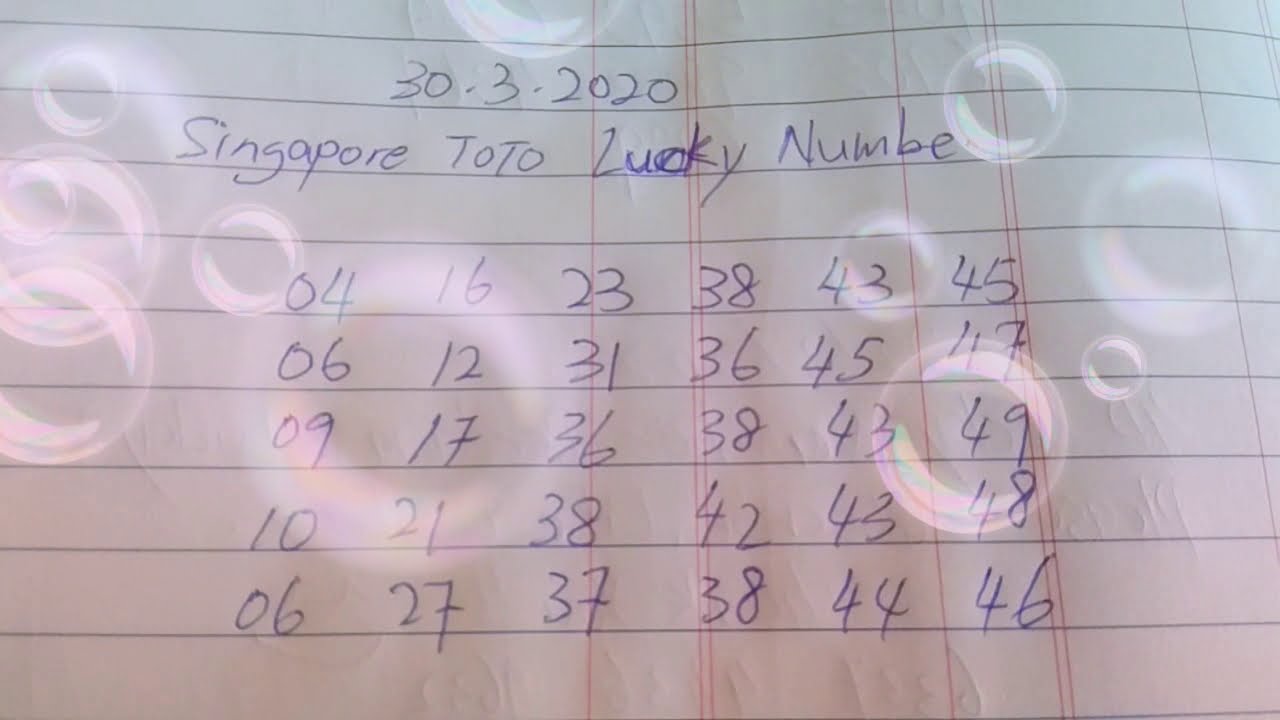 30.3.2020
Singapore TOTO Lucky Numbe
04 16 23 38 43 45
06 12 31 36 45 47
09 17 36 38 43 49
10 21 38 42 43 48
06 27 37 38 44 46